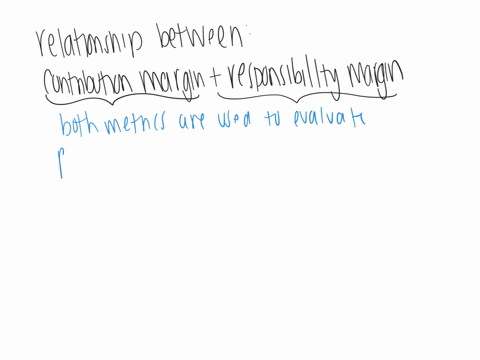 relationship between:
contribution margin + responsibility margin
both metrics are used to evaluate